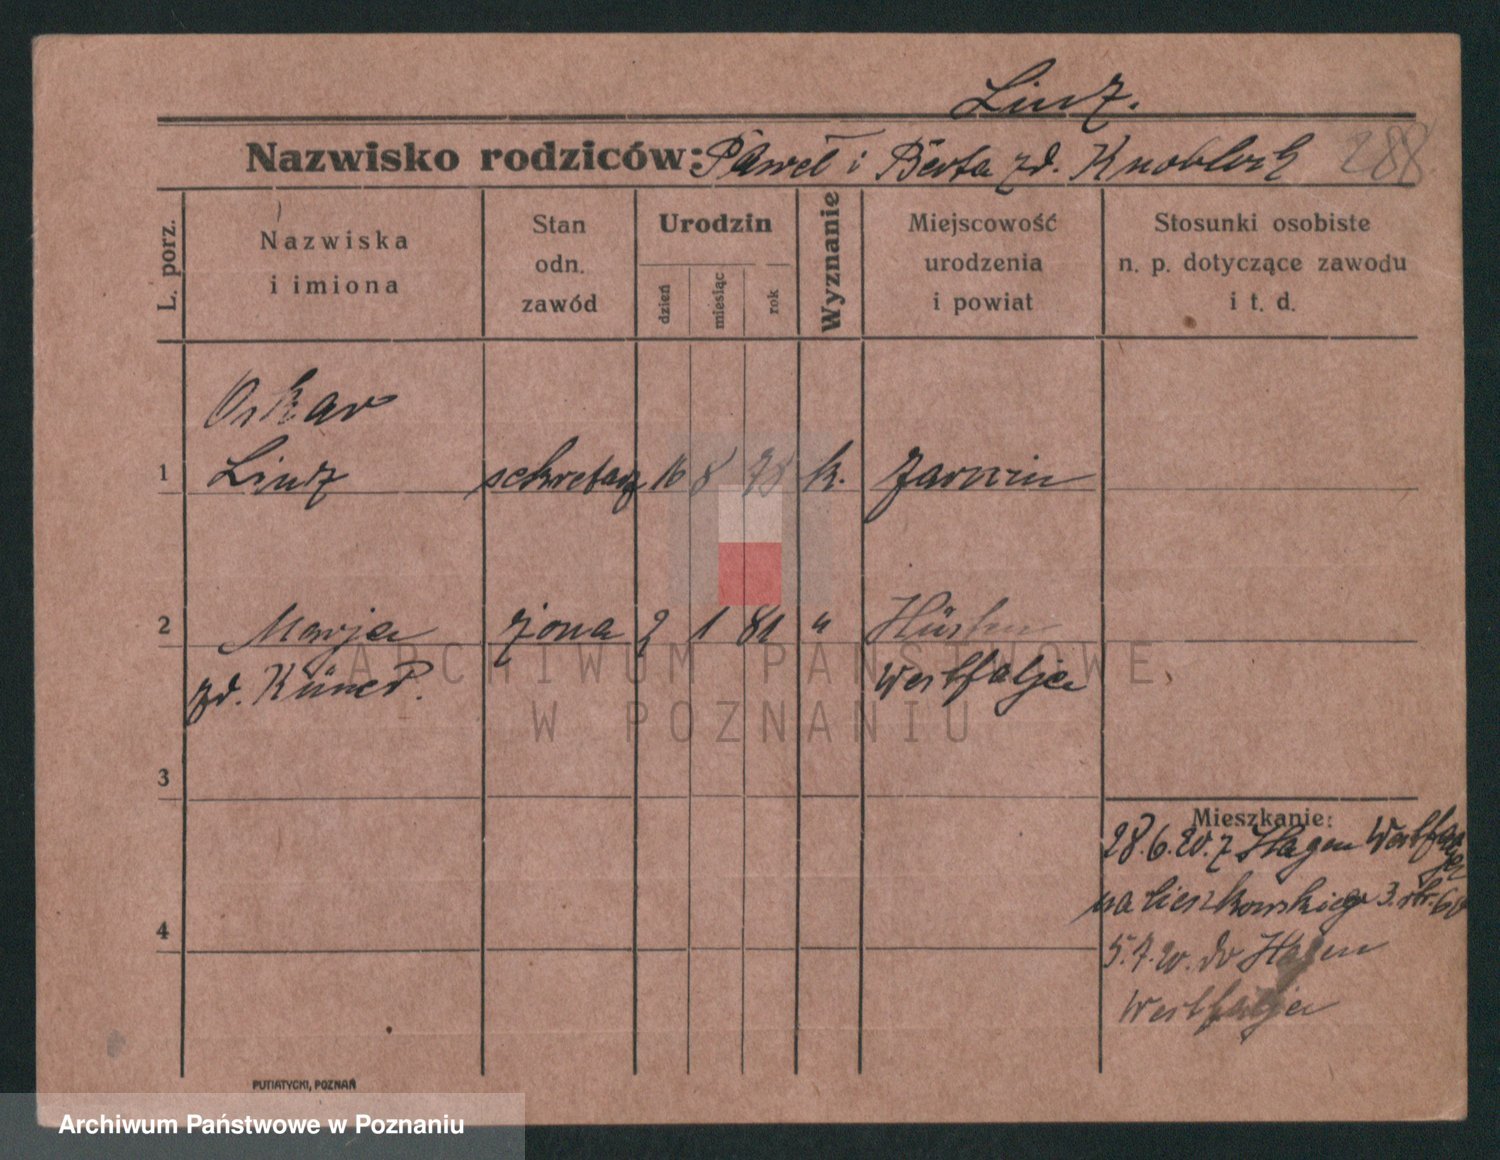 Linz.
Nazwisko rodziców: Paweł i Berta zd. Knobloch 288
L. porz.
Nazwiska
i imiona
Stan
odn.
zawód
Urodzin
dzień
miesiąc
rok
Wyznanie
Miejscowość
urodzenia
i powiat
Stosunki osobiste
n. p. dotyczące zawodu
i t. d.
Oskar
1 Linz sekretarz 16 8 78 k. Żarwin
2 Marja żona 2 1 81 "
zd. Westfalja
3
Mieszkanie:
28.6.20. z Hagen Westfalja
na Cieszkowskiego 3. str. 60
4
5.7.20. do Hagen
Westfalja
PUTIATYCKI, POZNAŃ
ARCHIWUM PAŃSTWOWE
W POZNANIU
Archiwum Państwowe w Poznaniu